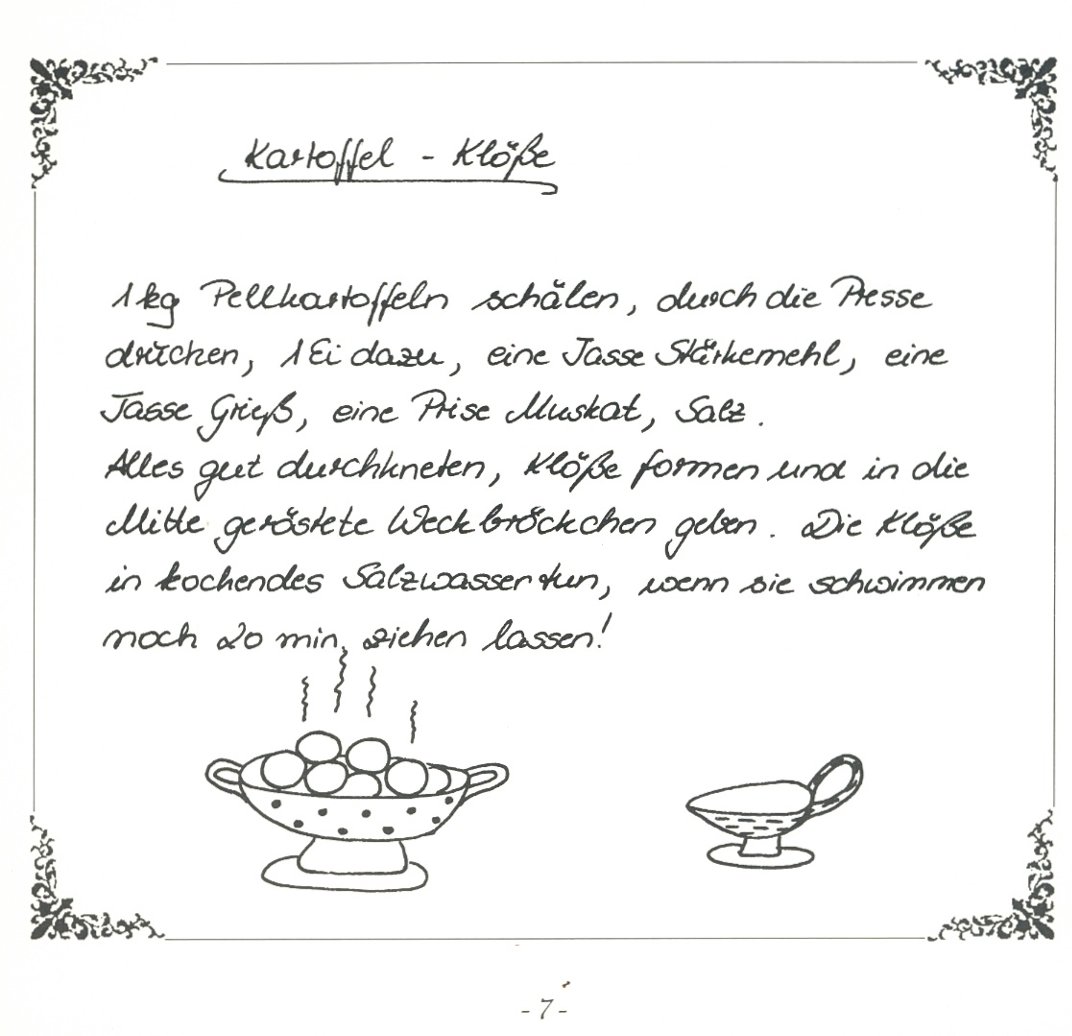 Kartoffel - Klöße
1 kg Pellkartoffeln schälen, durch die Presse
drücken, 1 Ei dazu, eine Tasse Stärkemehl, eine
Tasse Grieß, eine Prise Muskat, Salz.
Alles gut durchkneten, Klöße formen und in die
Mitte geröstete Weckbröckchen geben. Die Klöße
in kochendes Salzwasser tun, wenn sie schwimmen
noch 20 min. ziehen lassen!
- 7 -